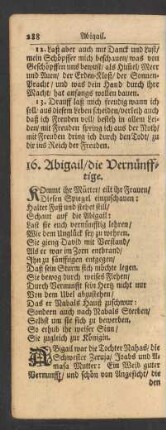 288 Abigail.
12. Laß aber auch mit Danck und Lust/
mein Schöpffer mich beschauen/ was von
Geschöpffen uns bewust: als Himel/ Meer
und Auen/ der Erden-Kloß/ der Sonnen-
Pracht/ und was dein Hand durch ihre
Macht hat anfangs wollen bauen.
13. Drauff laß mich freudig wann ich
soll/ aus diesem Leben scheiden/ verleih auch
daß ich Freuden voll/ besteh in allem Lei-
den/ mit Freuden spring ich aus der Noth/
mit Freuden dring ich durch den Tod/ zu
dir ins Reich der Freuden.
16. Abigail/ die Vernünff-
tige.
Kommt ihr Mütter/ eilt ihr Frauen/
Diesen Spiegel einzuschauen:
Haltet Fuß und stehet still/
Schaut auf die Abigail:
Last sie euch vernünfftig lehren/
Wie dem Unglück sey zu wehren,
Sie gieng David mit Verstand/
Als er war im Zorn entbrandt/
Ihn zu sänfftigen entgegen/
Daß sein Sturm sich möchte legen.
Sie bewog durch weisses Flehen/
Durch Vernunfft sein Hertz nicht mit
Von dem Übel abzustehen;
Das er Nabals Hauß zuschwur:
Sondern auch nach Nabals Sterben/
Selbst um sie sich zu bewerben.
So erhub ihr weiser Sinn/
Sie zugleich zur Königin.
Abigail war die Tochter Nahas/ die
Schwester Zeruja/ Joabs und A-
masa Mutter: Ein Weib guter
Vernunfft/ und schön von Angesicht/ die
den